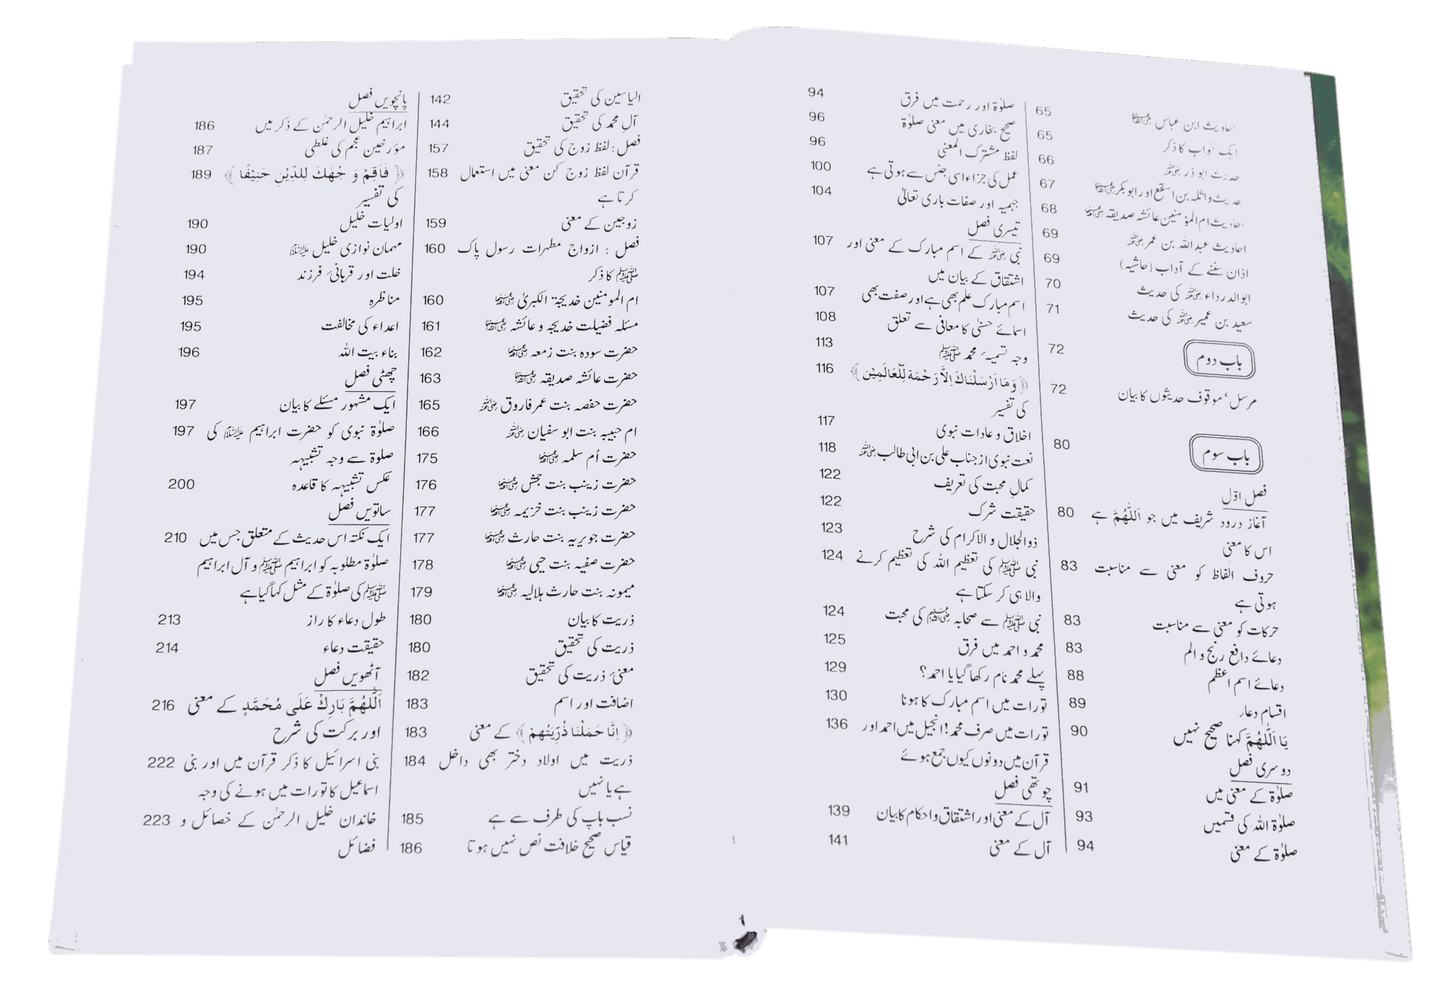 احادیث ابن عباس ؓ 65
ایک خواب کا ذکر 65
حدیث ابو ذر ؓ 66
حدیث واثلہ بن اسقع اور ابوبکر ؓ 67
احادیث ام المؤمنین عائشہ صدیقہ ؓ 68
احادیث عبداللہ بن عمر ؓ 69
اذان سننے کے آداب (حاشیہ) 69
ابوالدرداء ؓ کی حدیث 70
سعید بن عمیر ؓ کی حدیث 71
باب دوم 72
مرسل‘ موقوف حدیثوں کا بیان 72
باب سوم 80
فصل اوّل
آغاز درود شریف میں جو اَللّٰهُمَّ ہے 80
اس کا معنی
حروف الفاظ کو معنی سے مناسبت 83
ہوتی ہے
حرکات کو معنی سے مناسبت 83
دعائے دافع رنج و الم 83
دعائے اسم اعظم 88
اقسام دعاء 89
یَا اَللّٰهُمَّ کہنا صحیح نہیں 90
دوسری فصل
صلوٰۃ کے معنی میں 91
صلوٰۃ اللہ کی قسمیں 93
صلوٰۃ کے معنی 94
صلوٰۃ اور رحمت میں فرق 94
صحیح بخاری میں معنی صلوٰۃ 96
لفظ مشترک المعنی 96
عمل کی جزاء اسی جنس سے ہوتی ہے 100
جہمیہ اور صفات باری تعالیٰ 104
تیسری فصل
نبی ﷺ کے اسم مبارک کے معنی اور 107
اشتقاق کے بیان میں
اسم مبارک علم بھی ہے اور صفت بھی 107
اسمائے حسنٰی کا معانی سے تعلق 108
وجہ تسمیہ محمد ﷺ 113
﴿وَمَا اَرْسَلْنَاكَ اِلاَّ رَحْمَة لِّلْعَالَمِيْن﴾ 116
کی تفسیر
اخلاق و عادات نبوی 117
نعت نبوی از جناب علی بن ابی طالب ؓ 118
کمالِ محبت کی تعریف 122
حقیقت شرک 122
ذوالجلال و الاکرام کی شرح 123
نبی ﷺ کی تعظیم اللہ کی تعظیم کرنے 124
والا ہی کر سکتا ہے
نبی ﷺ سے صحابہ ؓ کی محبت 124
محمد و احمد میں فرق 125
پہلے محمد نام رکھا گیا یا احمد؟ 129
تورات میں اسم مبارک کا ہونا 130
تورات میں صرف محمد! انجیل میں احمد اور 136
قرآن میں دونوں کیوں جمع ہوئے
چوتھی فصل
آل کے معنی اور اشتقاق و احکام کا بیان 139
آل کے معنی 141
الیاسین کی تحقیق 142
آلِ محمد کی تحقیق 144
فصل: لفظ زوج کی تحقیق 157
قرآن لفظ زوج کن معنی میں استعمال 158
کرتا ہے
زوجین کے معنی 159
فصل : ازواج مطہرات رسول پاک 160
ﷺ کا ذکر
ام المومنین خدیجۃ الکبریٰ ؓ 160
مسئلہ فضیلت خدیجہ و عائشہ ؓ 161
حضرت سودہ بنت زمعہ ؓ 162
حضرت عائشہ صدیقہ ؓ 163
حضرت حفصہ بنت عمر فاروق ؓ 165
ام حبیبہ بنت ابو سفیان ؓ 166
حضرت اُم سلمہ ؓ 175
حضرت زینب بنت جحش ؓ 176
حضرت زینب بنت خزیمہ ؓ 177
حضرت جویریہ بنت حارث ؓ 177
حضرت صفیہ بنت حیی ؓ 178
میمونہ بنت حارث ہلالیہ ؓ 179
ذریت کا بیان 180
ذریت کی تحقیق 180
معنیٔ ذریت کی تحقیق 182
اضافت اور اسم 183
﴿ اِنَّا حَمَلْنَا ذُرِّيَّتَهُمْ ﴾ کے معنی 183
ذریت میں اولاد دختر بھی داخل 184
ہے یا نہیں
نسب باپ کی طرف سے ہے 185
قیاس صحیح خلافت نص نہیں ہوتا 186
پانچویں فصل
ابراہیم خلیل الرحمٰن کے ذکر میں 186
مؤرخین عجم کی غلطی 187
﴿ فَاَقِمْ وَ جْهَكَ لِلدِّيْنِ حَنِيْفًا ﴾ 189
کی تفسیر
اولیات خلیل 190
مہمان نوازی خلیل ؑ 190
خلت اور قربانیٔ فرزند 194
مناظرہ 195
اعداء کی مخالفت 195
بناء بیت اللہ 196
چھٹی فصل
ایک مشہور مسئلے کا بیان 197
صلوٰۃ نبوی کو حضرت ابراہیم ؑ کی 197
صلوۃ سے وجہ تشبیہہ
عکس تشبیہہ کا قاعدہ 200
ساتویں فصل
ایک نکتہ اس حدیث کے متعلق جس میں 210
صلوٰۃ مطلوبہ کو ابراہیم ﷺ و آل ابراہیم
ﷺ کی صلوٰۃ کے مثل کہا گیا ہے
طول دعاء کا راز 213
حقیقت دعاء 214
آٹھویں فصل
اَللّٰهُمَّ بَارِكْ عَلَى مُحَمَّدٍ کے معنی 216
اور برکت کی شرح
بنی اسرائیل کا ذکر قرآن میں اور بنی 222
اسماعیل کا تورات میں ہونے کی وجہ
خاندان خلیل الرحمٰن کے خصائل و 223
فضائل